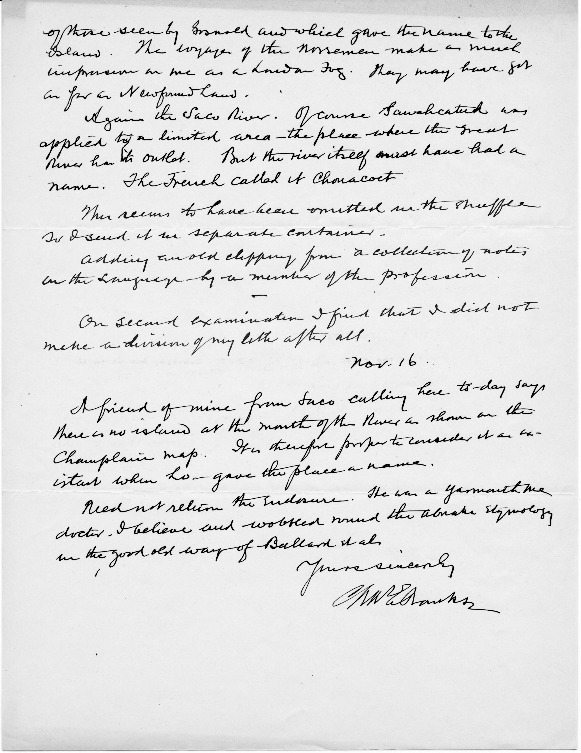 of those seen by Gosnold and which gave the name to the
Island. The voyages of the Norsemen make as much
impression on me as a London Fog. They may have got
as far as Newfoundland.
Again the Saco River. Of course Sawahcatuck was
applied to a limited area - the place where the Great
River has its outlet. But the river itself must have had a
name. The French called it Chouacoet
This seems to have been omitted in the shuffle
so I send it in separate container.
Adding an old clipping from a collection of notes
on the Language - by a member of the profession.
On second examination I find that I did not
make a division of my letter after all.
Nov. 16.
A friend of mine from Saco calling here to-day says
there is no island at the mouth of the River as shown on the
Champlain map. It is therefore proper to consider it as ex-
istant when he - gave the place a name.
Need not return the Enclosure. He was a Yarmouth Me
doctor, I believe and wobbled round the Abnake Etymology
in the good old way of Ballard et als
Yours sincerely
Chas E Banks